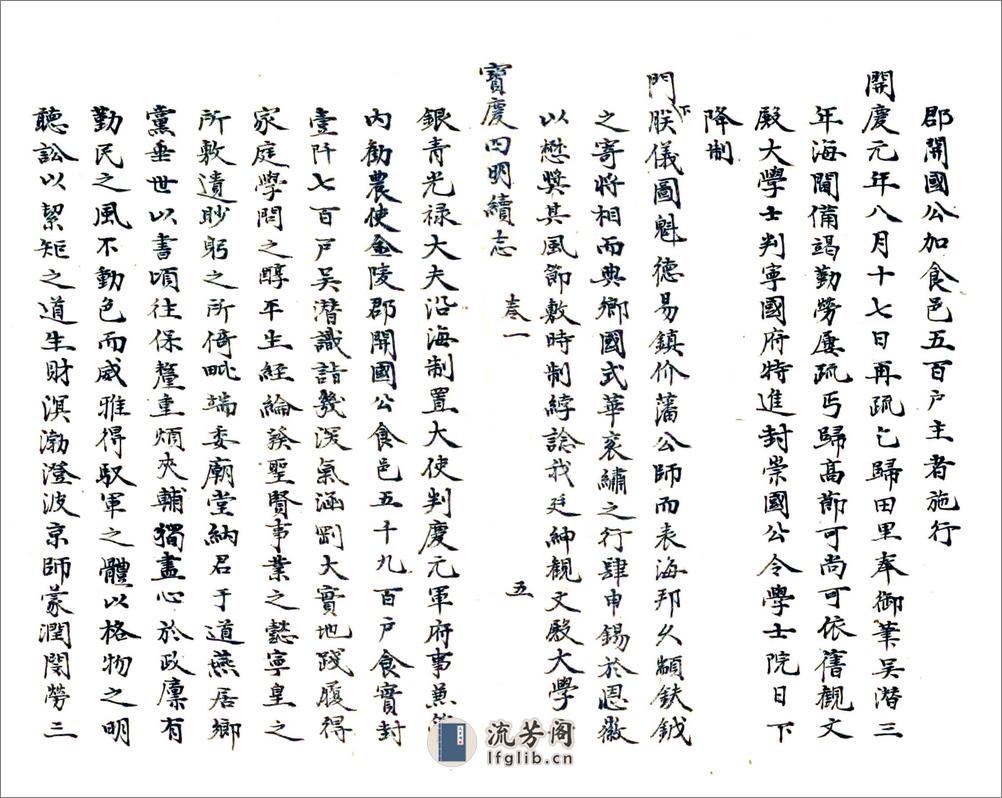 郡開國公加食邑五百戸主者施行
開慶元年八月十七日再疏乞歸田里奉御筆吳潛三
年海閫備竭勤勞屢疏丐歸高節可尚可依舊觀文
殿大學士判寧國府特進封崇國公令學士院日下
降制
門下朕儀圖魁德易鎮价藩公師而表海邦久顓鈇鉞
之寄將相而典鄉國式華衮繡之行肆申錫於恩徽
以懋奬其風節敷時制綍諗我廷紳觀文殿大學
寶慶四明續志 卷一 五
銀青光禄大夫沿海制置大使判慶元軍府事兼管
内勸農使金陵郡開國公食邑五千九百戸食實封
壹阡七百戸吳潛識詣發深氣涵剛大實地踐履得
家庭學問之醇平生經綸發聖賢事業之懿寧皇之
所敷遺眇躬之所倚毗端委廟堂納君于道燕居鄉
黨垂世以書頃往保釐重煩夾輔獨盡心於政廪有
勤民之風不動色而威雅得馭軍之體以格物之明
聽訟以絜矩之道生財溟渤澄波京師蒙潤閔勞三
流芳阁
lfglib.cn